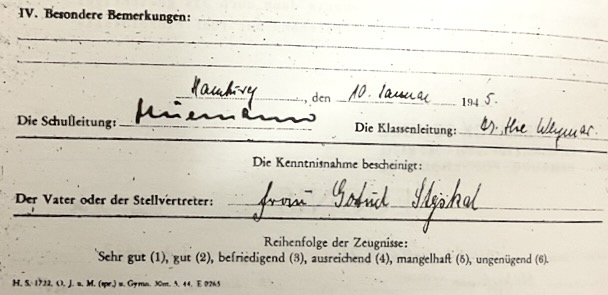 IV. Besondere Bemerkungen:
Hamburg, den 10. Januar 1945.
Die Schulleitung: Die Klassenleitung: Dr. Ilse Weymar.
Die Kenntnisnahme bescheinigt:
Der Vater oder der Stellvertreter: Frau Stejskal
Reihenfolge der Zeugnisse:
Sehr gut (1), gut (2), befriedigend (3), ausreichend (4), mangelhaft (5), ungenügend (6).
H. S. 1722. O. J. u. M. (spr.) u. Gymn. 30m. 5. 44. E 0265